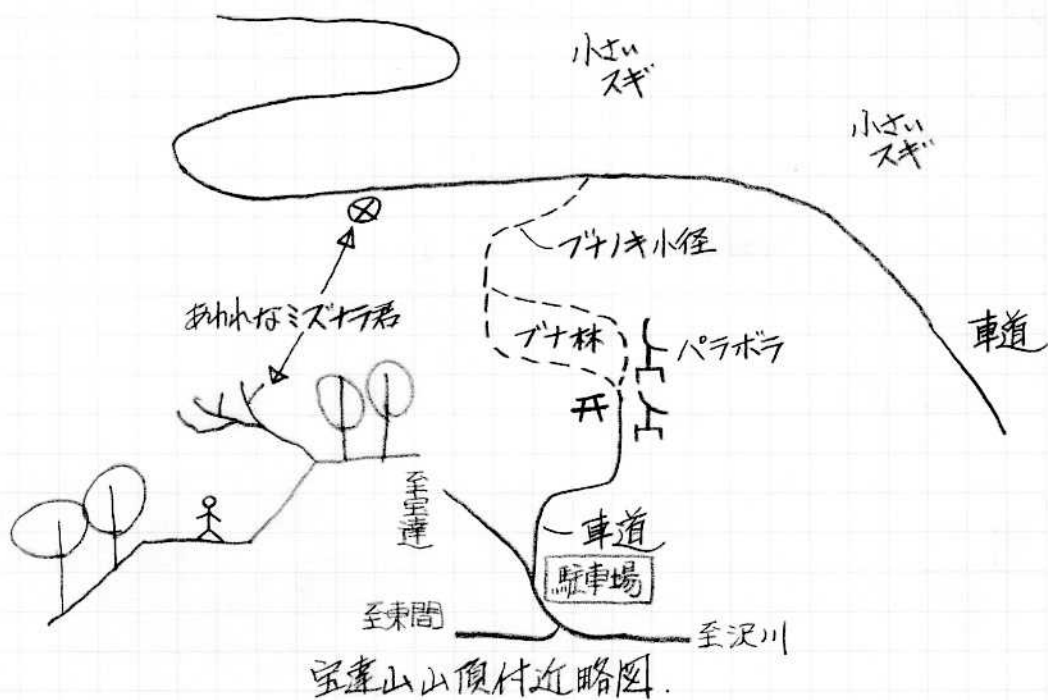 小さい
スギ
小さい
スギ
ブナノキ小径
あわれなミズナラ君
ブナ林
パラボラ
車道
至宝達
車道
駐車場
至東間
至沢川
宝達山山頂付近略図.